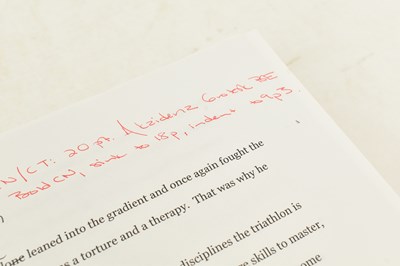 N/CT: 20 pt. Akzidenz Grotesk BE
Bold CN, sink to 18p, indent to 9p3.
)
lone leaned into the gradient and once again fought the
s a torture and a therapy. That was why he
disciplines the triathlon is
re skills to master,
ome